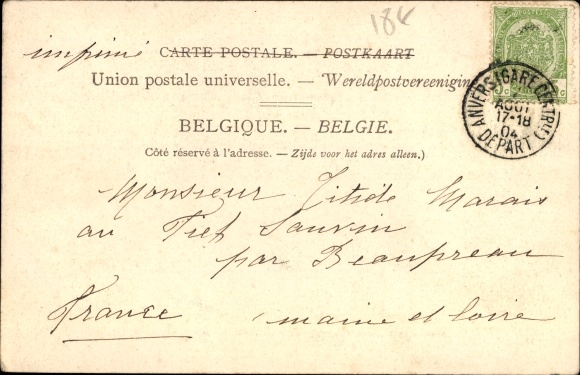 18€
imprimé CARTE POSTALE. — POSTKAART
Union postale universelle. — Wereldpostvereeniging
BELGIQUE. — BELGIE.
Côté réservé à l'adresse. — Zijde voor het adres alleen.)
ANVERS (GARE CENTRALE)
AOUT
17-18
04
DEPART
Monsieur Marais
au Fief Sauvin
par Beaupreau
France maine et loire